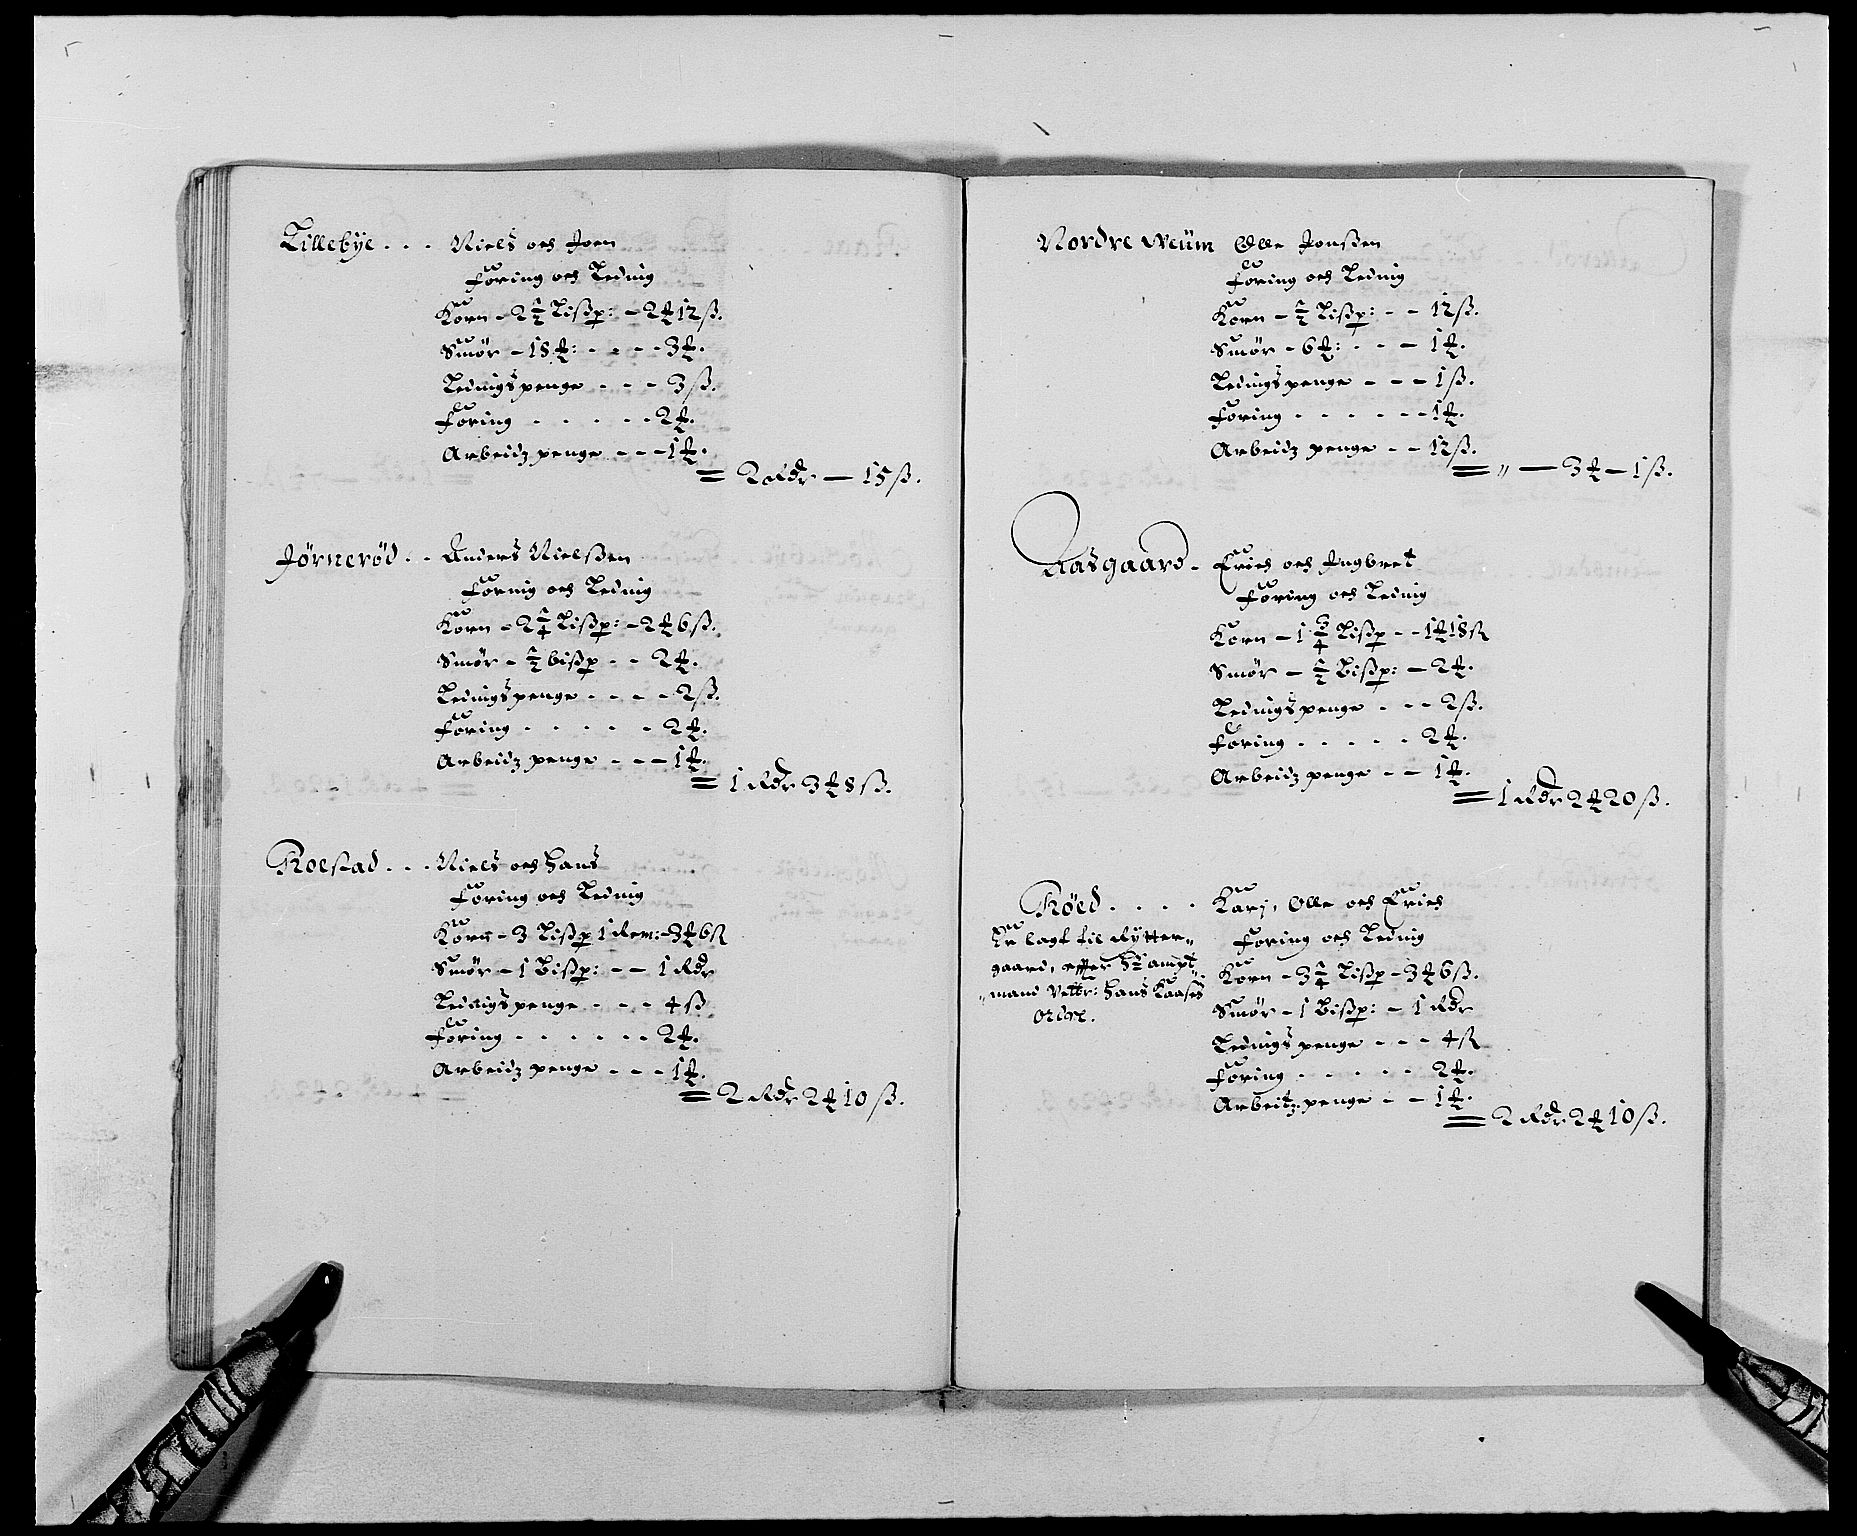 Lillebÿe . . . Niels och Joen
Foring och Leding
Korn - 2 1/2 Lißp: - 2 ℔ 12 ß.
Smør - 18 ℔: - - - - 3 ℔.
Ledingspenge - - - 3 ß.
Foring . . . . . 2 ℔.
Arbeidz penge - - - 1 ℔.
= 2 Rdr — 15 ß.
Jørnerød . . Anders Nielßen
Foring och Leding
Korn - 2 1/4 Lißp: - 2 ℔ 6 ß.
Smør - 1/2 bißp - - 2 ℔.
Ledingspenge - - - - 2 ß.
Foring . . . . . 2 ℔.
Arbeidz penge - - - 1 ℔.
= 1 Rdr 3 ℔ 8 ß.
Roestad . . . Niels och Hans
Foring och Leding
Korn - 3 Lißp 1 Rem: - 3 ℔ 6 ß
Smør - 1 Bißp: - - 1 Rdr
Ledingspenge - - - 4 ß
Foring . . . . . . 2 ℔.
Arbeidz penge - - - 1 ℔.
= 2 Rdr 2 ℔ 10 ß.
Nordre Weüm Olle Jonßen
Foring och Leding
Korn - 1/2 Lißp: - - 12 ß.
Smør - 6 ℔: - - - 1 ℔.
Ledingspenge - - - 1 ß.
Foring . . . . . . 1 ℔.
Arbeidz penge - - 12 ß.
= " — 3 ℔ - 1 ß.
Aasgaard - Erich och Ingbret
Foring och Leding
Korn - 1 3/4 Lißp - - 1 ℔ 18 ß
Smør - 1/2 Bißp: - 2 ℔.
Ledingspenge - - - 2 ß.
Foring . . . . . 2 ℔.
Arbeidz penge - - 1 ℔.
= 1 Rdr 2 ℔ 20 ß.
Røed . . . . Karj, Olle och Erich
Er lagt til Rÿtter-
gaard, effter Hr ampt
mand Hans Kaases
ordre.
Foring och Leding
Korn - 3 1/4 Lißp - 3 ℔ 6 ß.
Smør - 1 Bißp: - 1 Rdr
Ledings penge - - - 4 ß
Foring . . . . . 2 ℔.
Arbeitz penge - - 1 ℔.
= 2 Rdr 2 ℔ 10 ß.